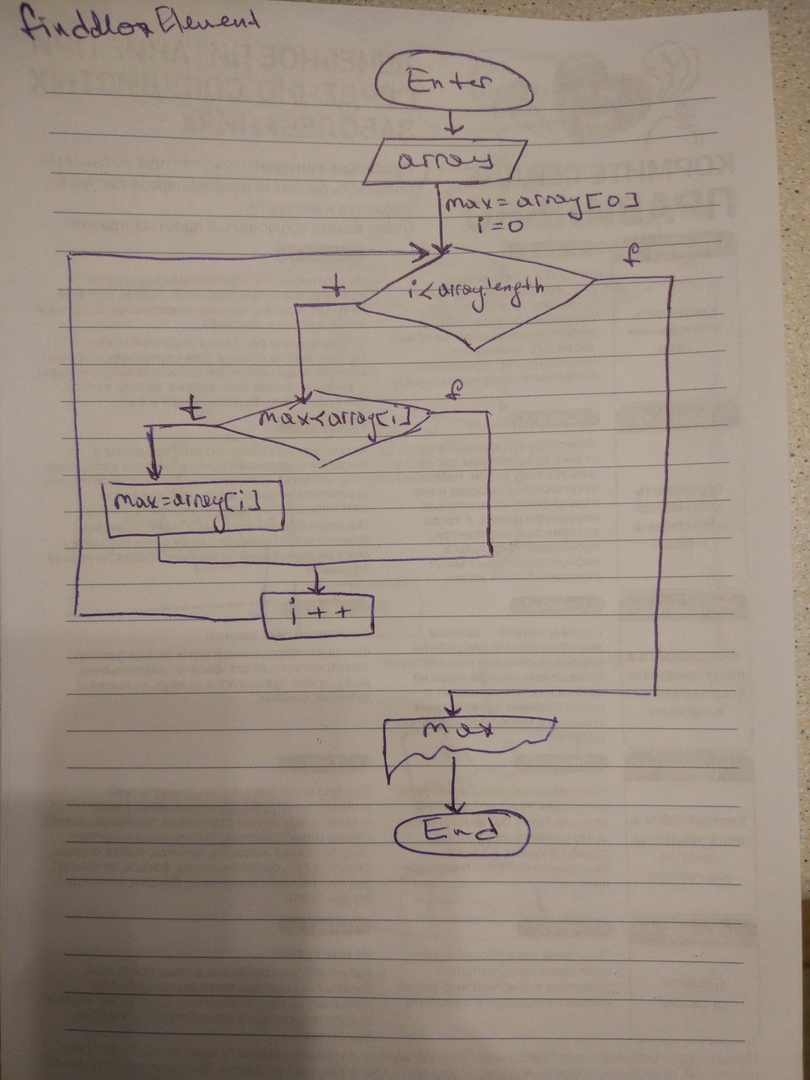 findMaxElement
Enter
array
max=array[0]
i=0
i<array.length
t
f
max<array[i]
t
f
max=array[i]
i++
max
End